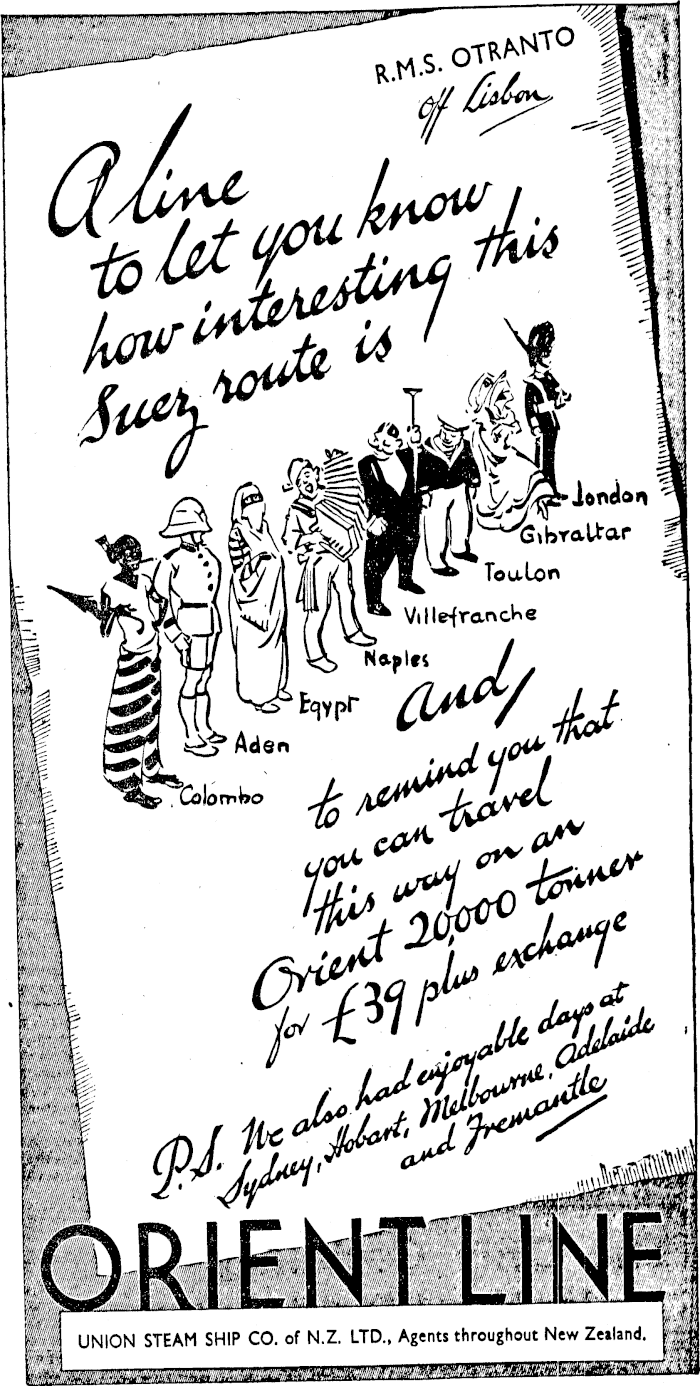 R.M.S. OTRANTO
off Lisbon
A line
to let you know
how interesting this
Suez route is
London
Gibraltar
Toulon
Villefranche
Naples
Egypt
Aden
Colombo
and
to remind you that
you can travel
this way on an
Orient 20,000 tonner
for £39 plus exchange
P.S. We also had enjoyable days at
Sydney, Hobart, Melbourne, Adelaide
and Fremantle
ORIENT LINE
UNION STEAM SHIP CO. of N.Z. LTD., Agents throughout New Zealand.